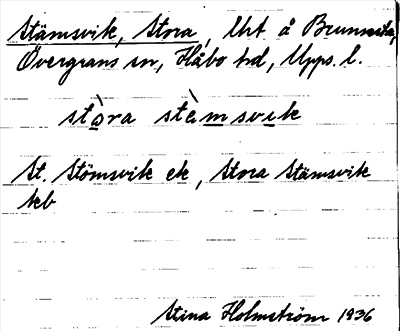 Stämsvik, Stora, lht å Brunnsta,
Övergrans sn, Håbo hd, Upps. l.
stora stèmsvik
St. Stömsvik ek, Stora Stämsvik
kb
Stina Holmström 1936